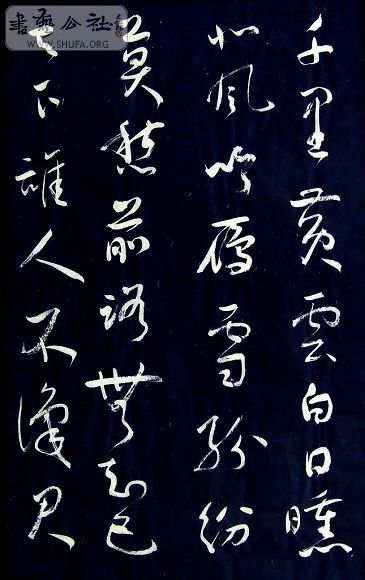 書法公社
WWW.SHUFA.ORG
千里黄雲白日曛
北風吹雁雪紛紛
莫愁前路無知己
天下誰人不識君